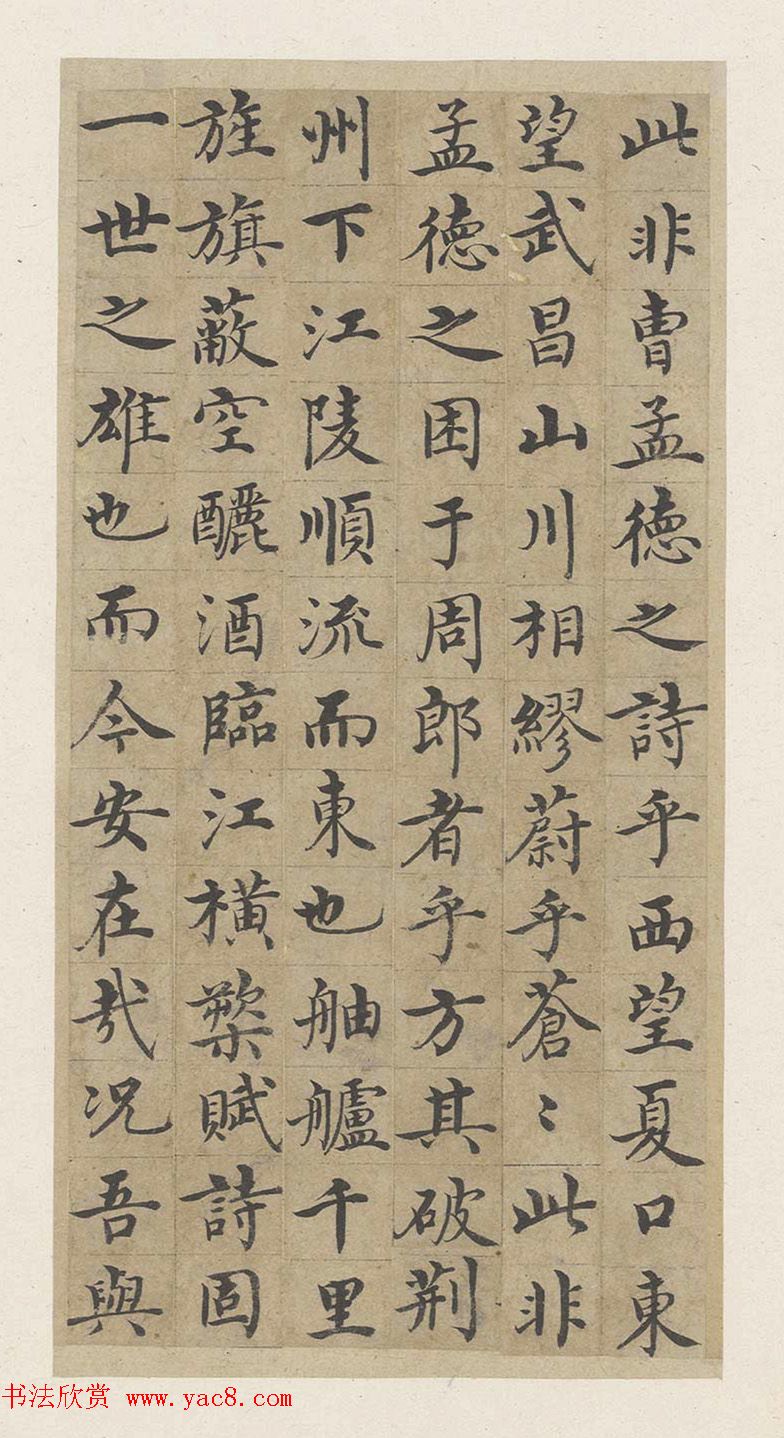 此非曹孟德之詩乎西望夏口東
望武昌山川相繆蔚乎蒼〻此非
孟德之困于周郎者乎方其破荆
州下江陵順流而東也舳艫千里
旌旗蔽空釃酒臨江橫槊賦詩固
一世之雄也而今安在哉況吾與
书法欣赏 www.yac8.com